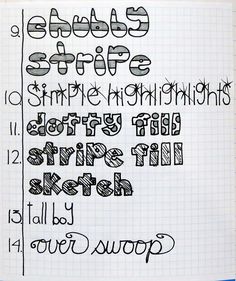 9. chubby
stripe
10. Simple highlighlights
11. dotty fill
12. stripe fill
sketch
13. tall boy
14. over swoop